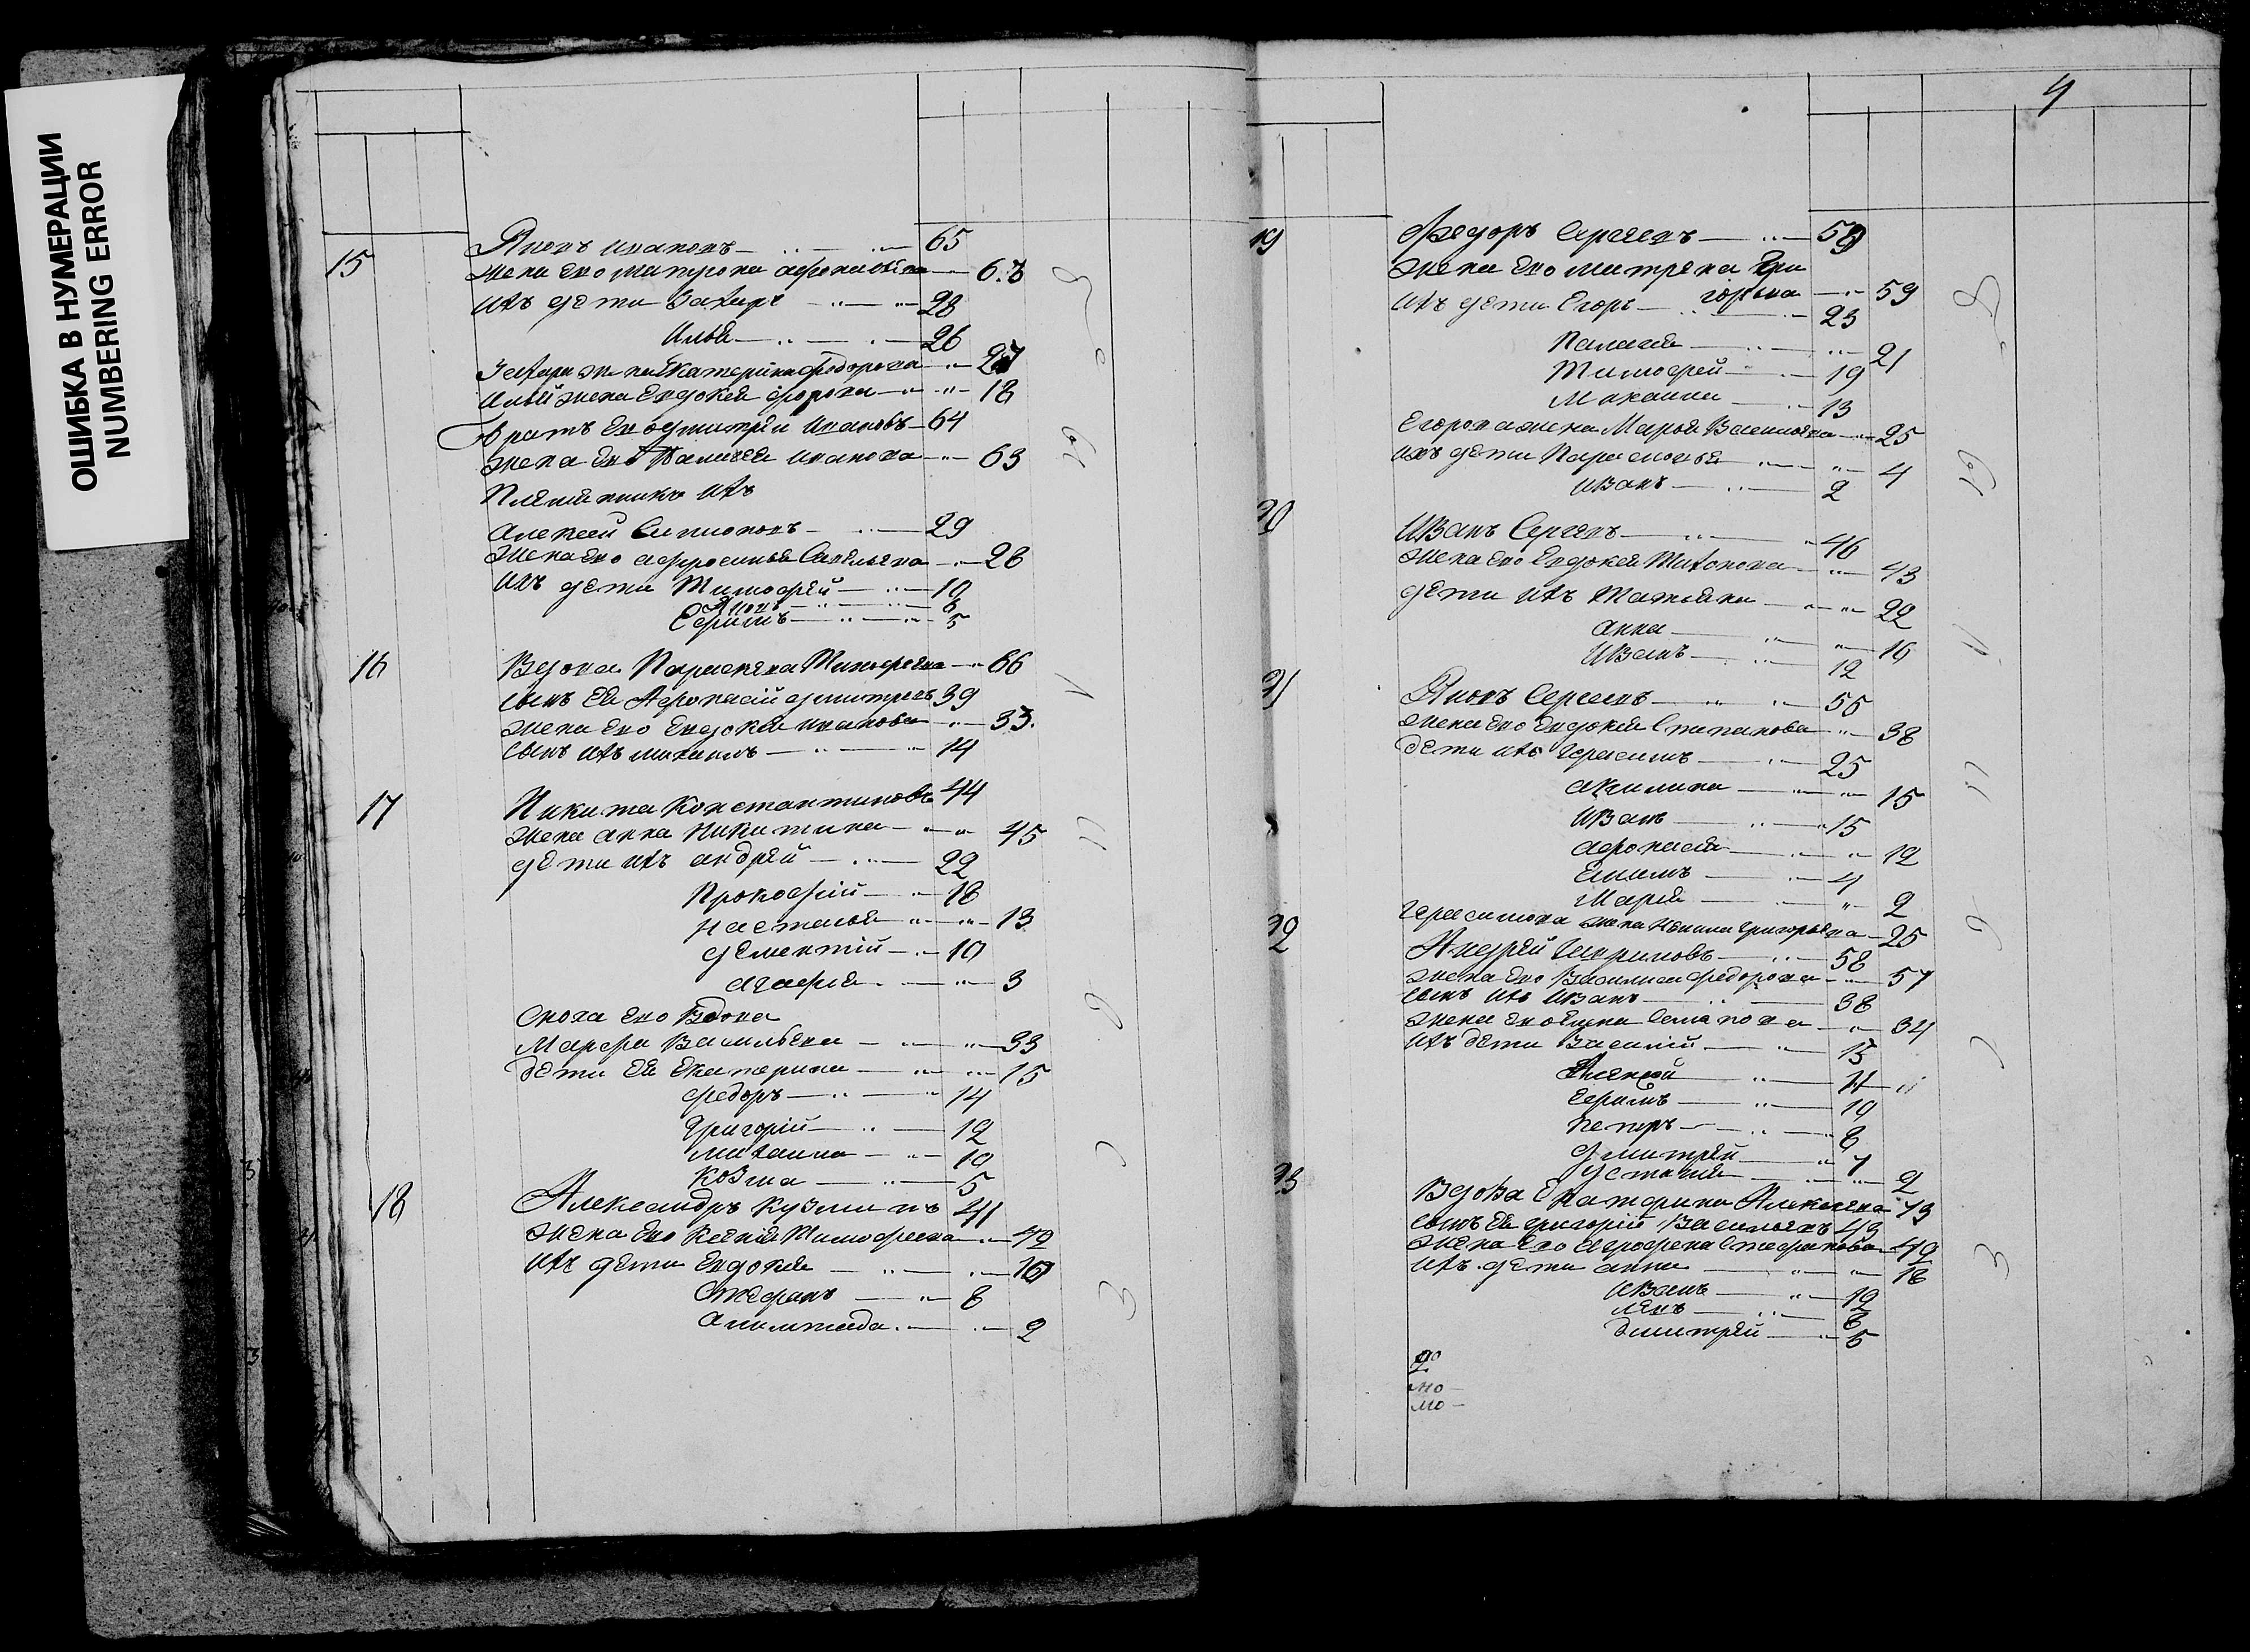 ОШИБКА В НУМЕРАЦИИ
NUMBERING ERROR
15 Яковъ Ивановъ 65
жена ево Матрона Афонасьева 63
ихъ дети Захаръ 28
Илья 26
Захара жена Екатерина Федорова 27
Ильи жена Евдокея 18
братъ ево Дмитрѣй Ивановъ 64
жена ево Палагея Иванова 63
Племянникъ ихъ
Алексей 29
жена ево Афросинья Савельева 28
ихъ дети Тимофей 10
Яковъ 8
Ефимъ 5
16 Вдова Парасковья Тимофеева 66
сынъ ея Афонасій Дмитревъ 39
жена ево Евдокея Иванова 33
сынъ ихъ Михаилъ 14
17 Никита Константиновъ 44
жена Анна Никитина 45
дети ихъ Андрей 22
Прокофій 18
Насталья 13
Дементій 10
Агафья 3
Сноха ево вдова
Марфа Васильева 33
Дети ея Екатерина 15
Федоръ 14
Григорій 12
Михаила 10
Козма 5
18 Александръ Кузминъ 41
жена ево Ксенія Тимофеева 42
ихъ дети Евдокея 10
Стефанъ 8
2
4
19 Федоръ Сергеевъ 59
жена ево Матрена Гри
горьева 59
ихъ дети Егоръ 23
Палагея 21
Тимофей 19
Михаила 13
Егорова жена Марья Васильева 25
ихъ дети Парасковья 4
Иванъ 2
20 Иванъ Сергеевъ 46
жена ево Евдокея Тихонова 43
дети ихъ Татьяна 22
Анна 16
Иванъ 12
21 Яковъ Сергеевъ 55
жена ево Евдокея Степанова 38
Дети ихъ Герасимъ 25
Акулина 15
Иванъ 15
Афонасея 12
4
Марья 2
Герасимова жена Григорьева 25
22 Андрей Гавриловъ 58
жена ево Василиса Федорова 57
сынъ ихъ Иванъ 38
жена ево 34
ихъ дети Василій 15
Алексей 11
Ефимъ 10
Петръ 8
Дмитрей 7
2
23 Вдова Екатерина Алексеева 73
сынъ ея Григорій Васильевъ 43
жена ево Агрофена Стефанова 42
ихъ дети Анна 18
Иванъ 12
Левъ 8
Дмитрей 5
мо
мо